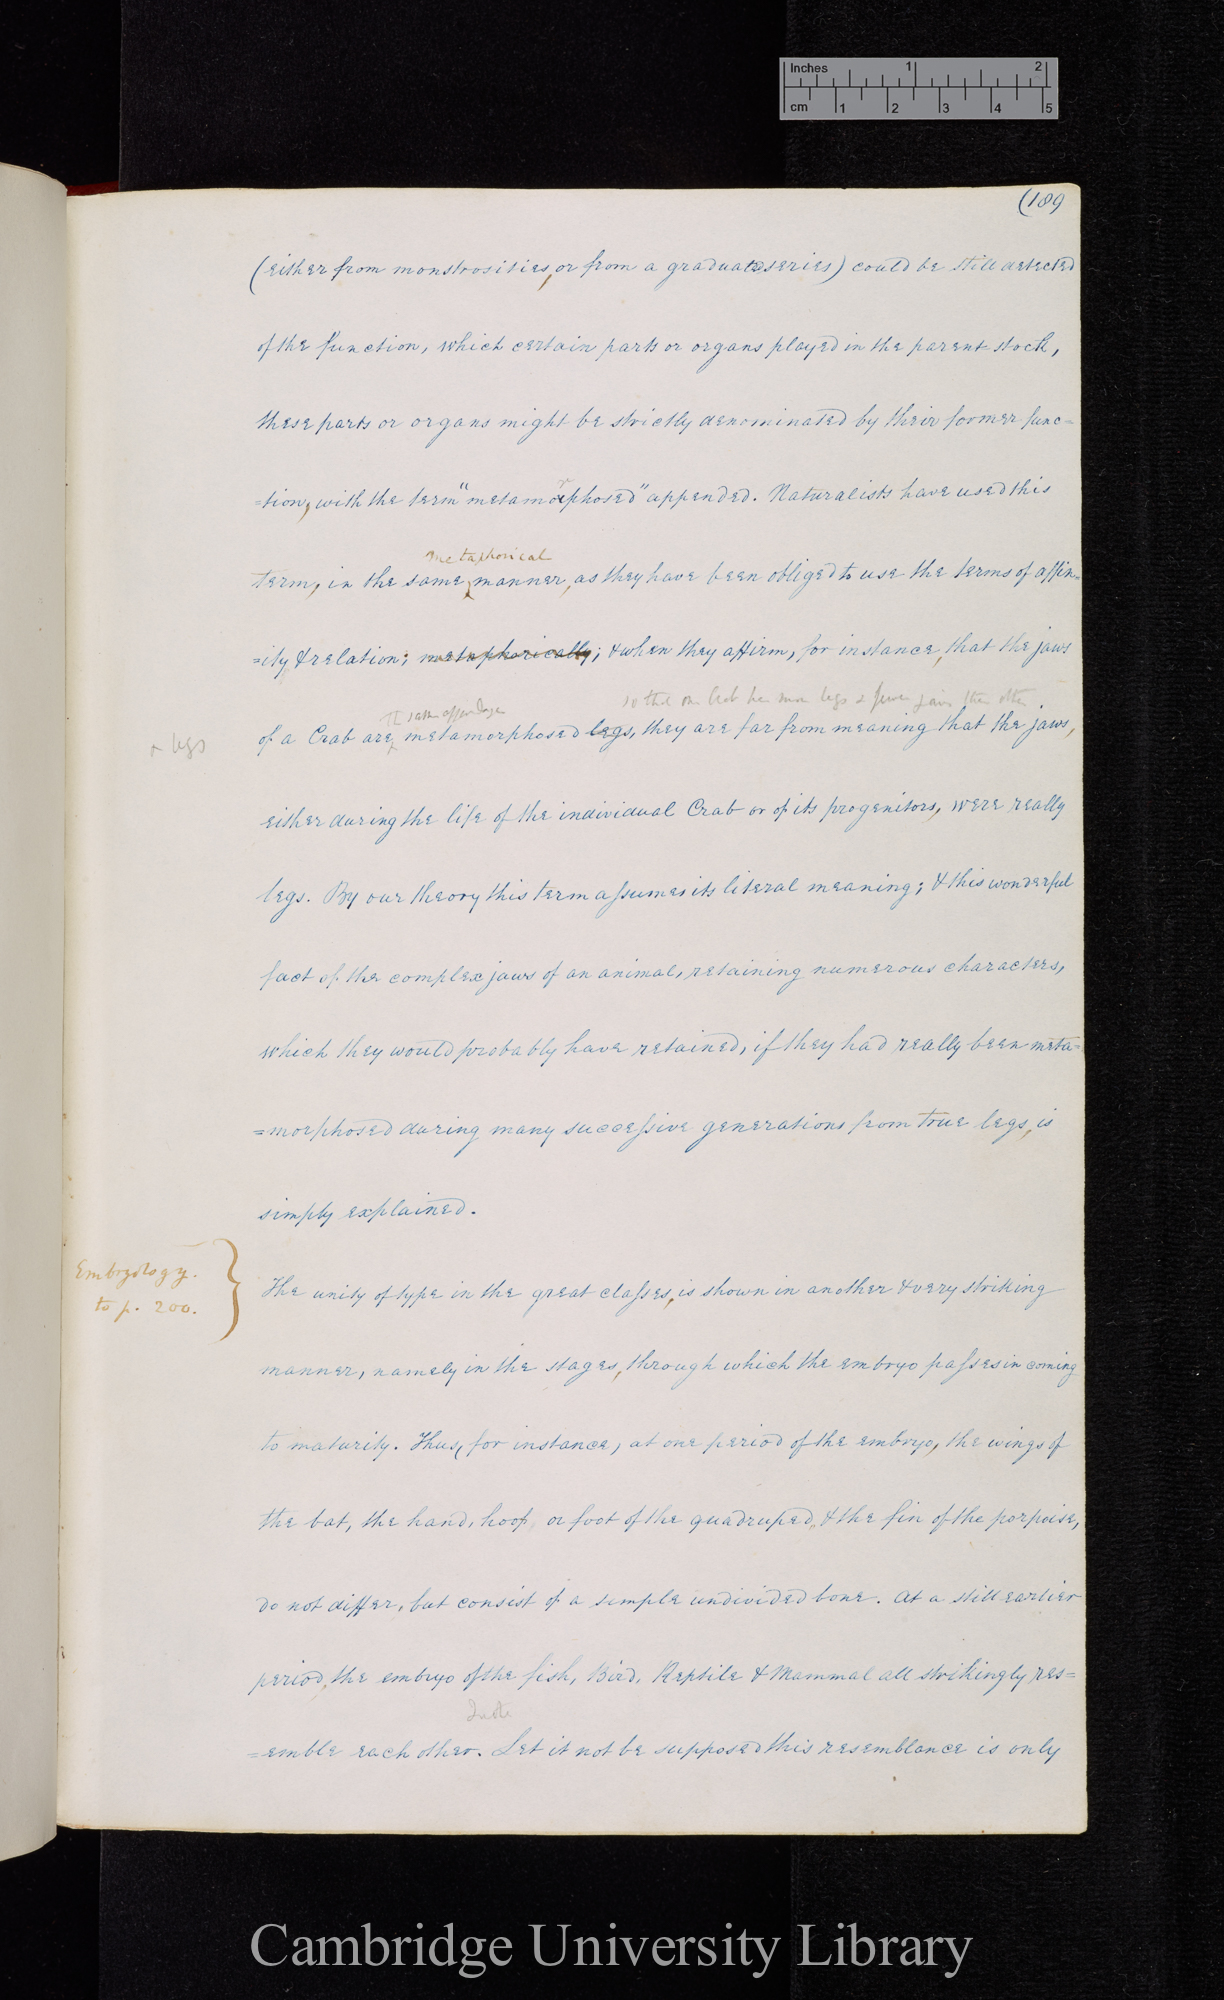 Inches 1 2
cm 1 2 3 4 5
(189
(either from monstrosities, or from a graduate series) could be still detected
of the function, which certain parts or organs played in the parent stock,
these parts or organs might be strictly denominated by their former func-
=tion, with the term "metamorphosed" appended. Naturalists have used this
metaphorical
term, in the same manner, as they have been obliged to use the terms of affin-
=ity & relation; metaphorically; & when they affirm, for instance, that the jaws
so that one Crab has more legs & fewer jaws than other
The same appendage
+ legs
of a Crab are metamorphosed legs, they are far from meaning that the jaws,
either during the life of the individual Crab or of its progenitors, were really
legs. By our theory this term assumes its literal meaning; & this wonderful
fact of the complex jaws of an animal, retaining numerous characters,
which they would probably have retained, if they had really been meta-
=morphosed during many successive generations from true legs, is
simply explained.
Embryology.
to p. 200.
The unity of type in the great classes, is shown in another & very striking
manner, namely in the stages, through which the embryo passes in coming
to maturity. Thus, for instance, at one period of the embryo, the wings of
the bat, the hand, hoof or foot of the quadruped, & the fin of the porpoise,
do not differ, but consist of a simple undivided bone. At a still earlier
period, the embryo of the fish, Bird, Reptile & Mammal all strikingly res=
=emble each other. Let it not be supposed this resemblance is only
Cambridge University Library